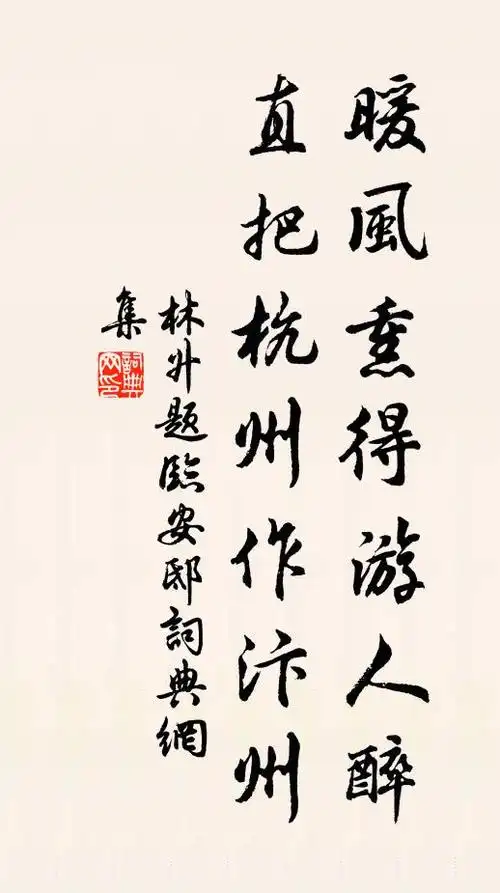 暖風熏得游人醉
直把杭州作汴州
林升題臨安邸詞典網
集
詞典
网印